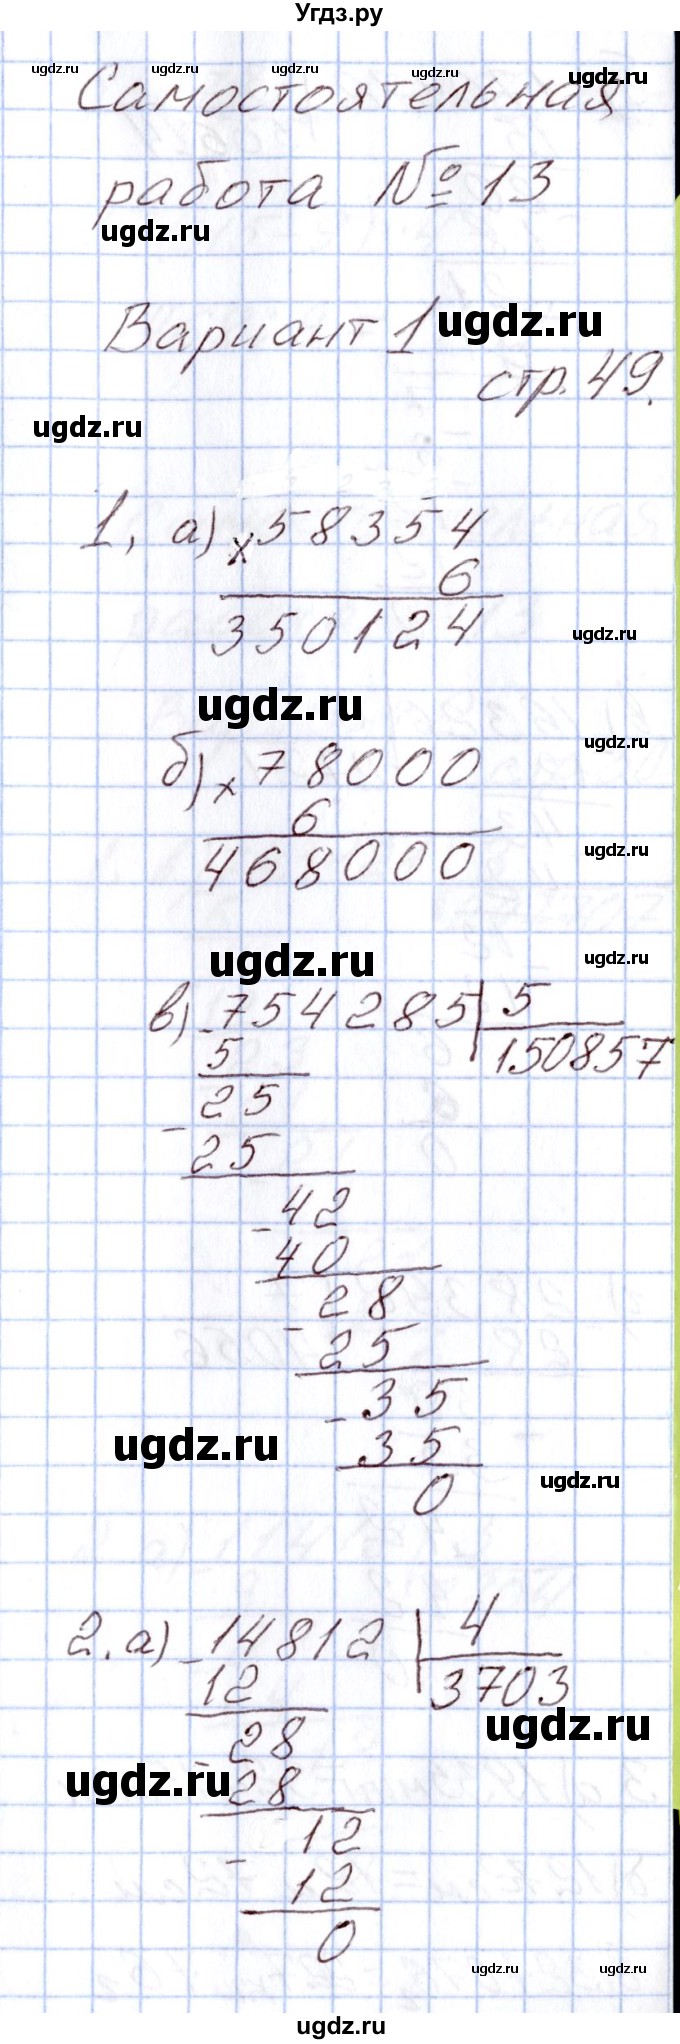 Угдз.ру
ugdz.ru ugdz.ru ugdz.ru ugdz.ru ugdz.ru
Самостоятельная
работа № 13
ugdz.ru
Вариант 1 ugdz.ru
стр. 49.
ugdz.ru
1, а) × 58354
6
350124
ugdz.ru
ugdz.ru
ugdz.ru
б) × 78000
6
468000
ugdz.ru
ugdz.ru
ugdz.ru
в) - 754285 | 5
5 150857
25
-
25
- 42
40
28
-
25
- 35
ugdz.ru 35
0 ugdz.ru
2. а) - 14812 | 4
12 3703
ugdz.ru
28
-
ugdz.ru 28
12
-
12
0
ugdz.ru ugdz.ru
ugdz.ru